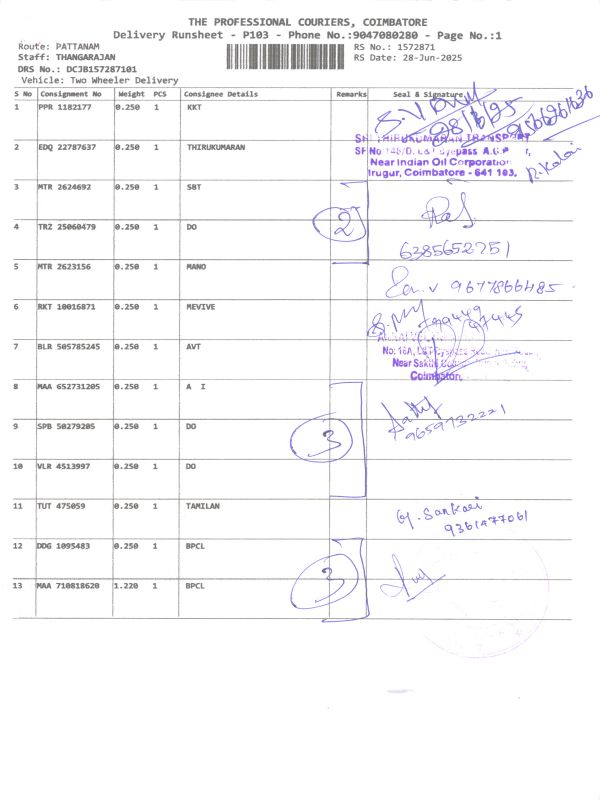 THE PROFESSIONAL COURIERS, COIMBATORE
Delivery Runsheet - P103 - Phone No.:9047080280 - Page No.:1
Route: PATTANAM
RS No.: 1572871
Staff: THANGARAJAN
RS Date: 28-Jun-2025
DRS No.: DCJB157287101
Vehicle: Two Wheeler Delivery
S No Consignment No Weight PCS Consignee Details Remarks Seal & Signature
1 PPR 1182177 0.250 1 KKT
2 EDQ 22787637 0.250 1 THIRUKUMARAN
SRI THIRUKUMARAN TRANSPORT
Near Indian Oil Corporation
Irugur, Coimbatore - 641 103.
R. Kalai
3 MTR 2624692 0.250 1 SBT
2
4 TRZ 25060479 0.250 1 DO
6385652751
5 MTR 2623156 0.250 1 MANO
9677866485
6 RKT 10016871 0.250 1 MEVIVE
7 BLR 505785245 0.250 1 AVT
Coimbatore
8 MAA 652731205 0.250 1 A I
9659732221
9 SPB 50279205 0.250 1 DO
3
10 VLR 4513997 0.250 1 DO
11 TUT 475059 0.250 1 TAMILAN
9361477061
12 DDG 1095483 0.250 1 BPCL
3
13 MAA 710818620 1.220 1 BPCL